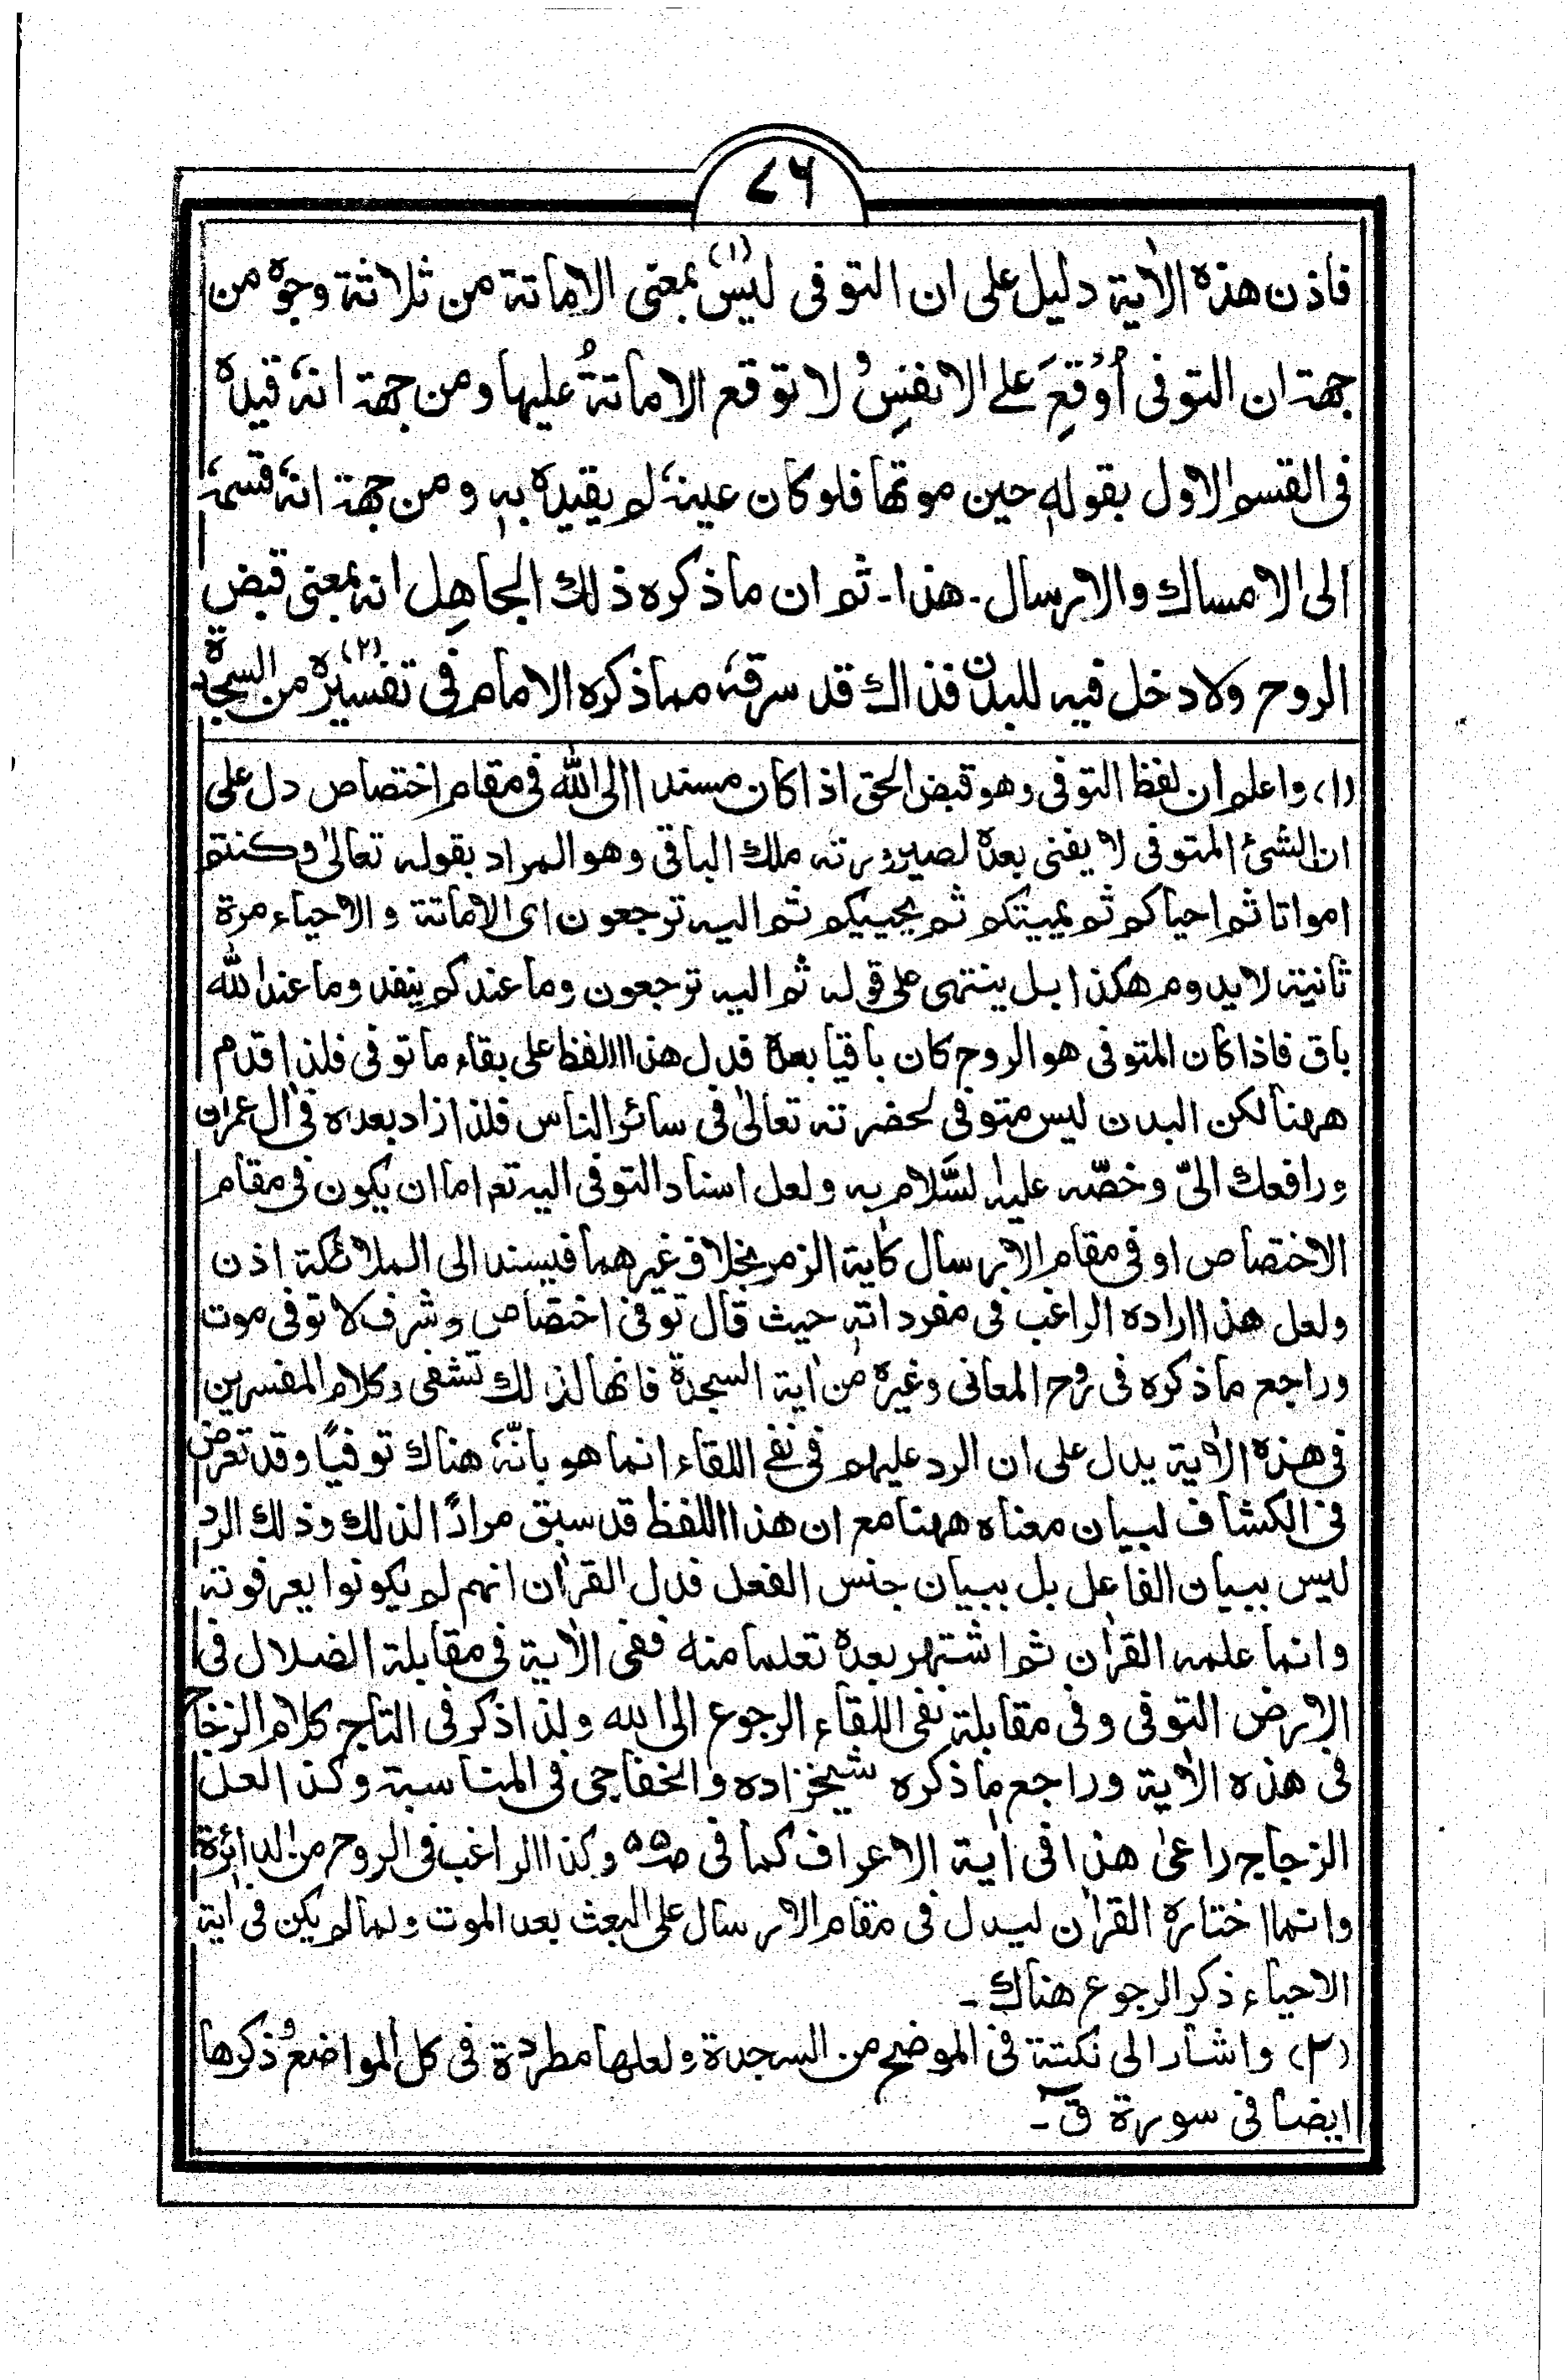 ٧٦
فاذن هذه الاٰية دليل على ان التوفى ليس(١) بمعنى الاماتة من ثلاثة وجوه من
جهة ان التوفى اُوْقِعَ على الانفسِ ولا توقع الاماتةُ عليها ومن جهة انهٗ قيده
فى القسم الاول بقولهٖ حين موتها فلو كان عينهٗ لم يقيده بهٖ ومن جهة انهٗ قسمهٗ
الى الامساك والارسال۔ هذا۔ ثم ان ما ذكره ذلك الجاهِل انه بمعنى قبض
الروح ولا دخل فيه للبدن فذاك قد سرقهٗ مما ذكره الامام فى تفسيره(٢) من السجدة
(١) واعلم ان لفظ التوفى وهو قبض الحق اذا كان مسندا الى الله فى مقام اختصاص دل على
ان الشئ المتوفى لا يفنى بعده لصيرورته ملك الباقى وهو المراد بقوله تعالىٰ وكنتم
امواتا ثم احياكم ثم يميتكم ثم يحييكم ثم اليه ترجعون اى الاماتة والاحياء مرة
ثانية لا يدوم هكذا بل ينتهى على قوله ثم اليه ترجعون وما عندكم ينفد وما عند الله
باق فاذا كان المتوفى هو الروح كان باقيا بعده فدل هذا اللفظ على بقاء ما توفى فلذا قدم
ههنا لكن البدن ليس متوفى لحضرته تعالىٰ فى سائر الناس فلذا زاد بعده فى اٰل عمران
ورافعك الىّ وخصّه عليه السَّلام به ولعل اسناد التوفى اليه تعـ اما ان يكون فى مقام
الاختصاص او فى مقام الارسال كاٰية الزمر بخلاف غيرهما فيسند الى الملائكة اذن
ولعل هذا اراده الراغب فى مفرداتهٖ حيث قال توفى اختصاص وشرف لا توفى موت
وراجع ما ذكره فى روح المعانى وغيره من اٰية السجدة فانها لذلك تشفى وكلام المفسرين
فى هذه الاٰية يدل على ان الرد عليهم فى نفى اللقاء انما هو بانّهٗ هناك توفيًا وقد تعرض
فى الكشاف لبيان معناه ههنا مع ان هذا اللفظ قد سبق مرادًا لذلك وذلك الرد
ليس ببيان الفاعل بل ببيان جنس الفعل فدل القراٰن انهم لم يكونوا يعرفونه
وانما علمه القراٰن ثم اشتهر بعده تعلما منه ففى الاٰية فى مقابلة الضلال فى
الارض التوفى وفى مقابلة نفى اللقاء الرجوع الى الله ولذا ذكر فى التاج كلام الزجاج
فى هذه الاٰية وراجع ما ذكره شيخزاده والخفاجى فى المناسبة وكذا لعل
الزجاج راعىٰ هذا فى اٰية الاعراف كما فى صـ٥٥ وكذا الراغب فى الروح من الدائرة
وانما اختاره القراٰن ليدل فى مقام الارسال على البعث بعد الموت ولما لم يكن فى اٰية
الاحياء ذكر الرجوع هناك۔
(٢) واشار الى نكتة فى الموضح من السجدة ولعلها مطردة فى كل المواضع وذكرها
ايضا فى سورة قٓ۔